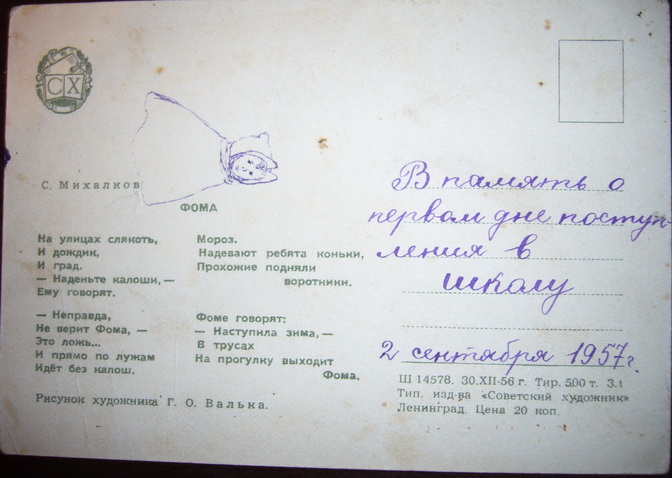 СХ
С. Михалков
ФОМА
На улицах слякоть,
И дождик,
И град.
— Наденьте калоши, —
Ему говорят.
— Неправда,
Не верит Фома, —
Это ложь...
И прямо по лужам
Идёт без калош.
Мороз.
Надевают ребята коньки,
Прохожие подняли
воротники.
Фоме говорят:
— Наступила зима, —
В трусах
На прогулку выходит
Фома.
Рисунок художника Г. О. Валька.
В память о
первом дне поступ-
ления в
школу
2 сентября 1957 г.
Ш 14578. 30.XII-56 г. Тир. 500 т. З.1
Тип. изд-ва «Советский художник»
Ленинград. Цена 20 коп.